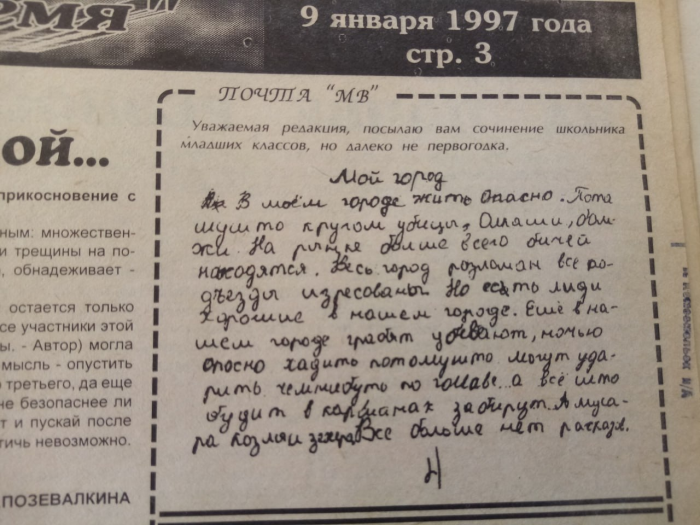 емя
9 января 1997 года
стр. 3
ПОЧТА "МВ"
Уважаемая редакция, посылаю вам сочинение школьника
младших классов, но далеко не первогодка.
Мой город
В моём городе жить опасно. Пота
мушто кругом убийцы, Алкаши, бом-
жи. На рынке болше всего бичей
находятся. Весь город розломан все по-
дъезды изресованы. Но есть люди
хорошие в нашем городе. Ещё в на-
шем городе грабят убевают, ночью
опосно хадить потомушто могут уда-
рить чемнибуть по голаве... а всё што
будит в карманах забирут. А муса-
ра козлы Все больше нет расказа.
ой...
прикосновение с
ным: множествен-
и трещины на по-
, обнадеживает -
остается только
се участники этой
ы. - Автор) могла
мысль - опустить
о третьего, да еще
не безопаснее ли
т и пускай после
тичь невозможно.
ПОЗЕВАЛКИНА